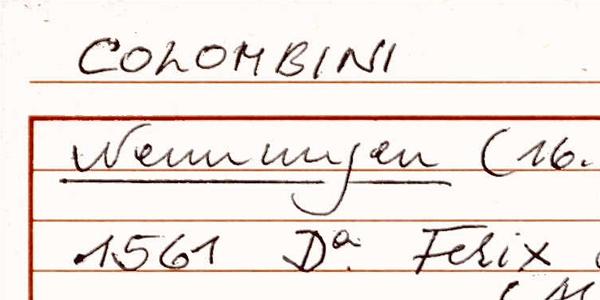 COLOMBINI
Nenningen (16.
1561 Da. Felix